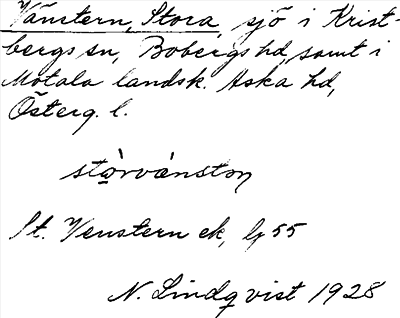 Vänstern, Stora, sjö i Krist-
bergs sn, Bobergs hd, samt i
Motala landsk. Aska hd,
Österg. l.
stòrvánston
St. Venstern ek, bg 55
N. Lindqvist 1928